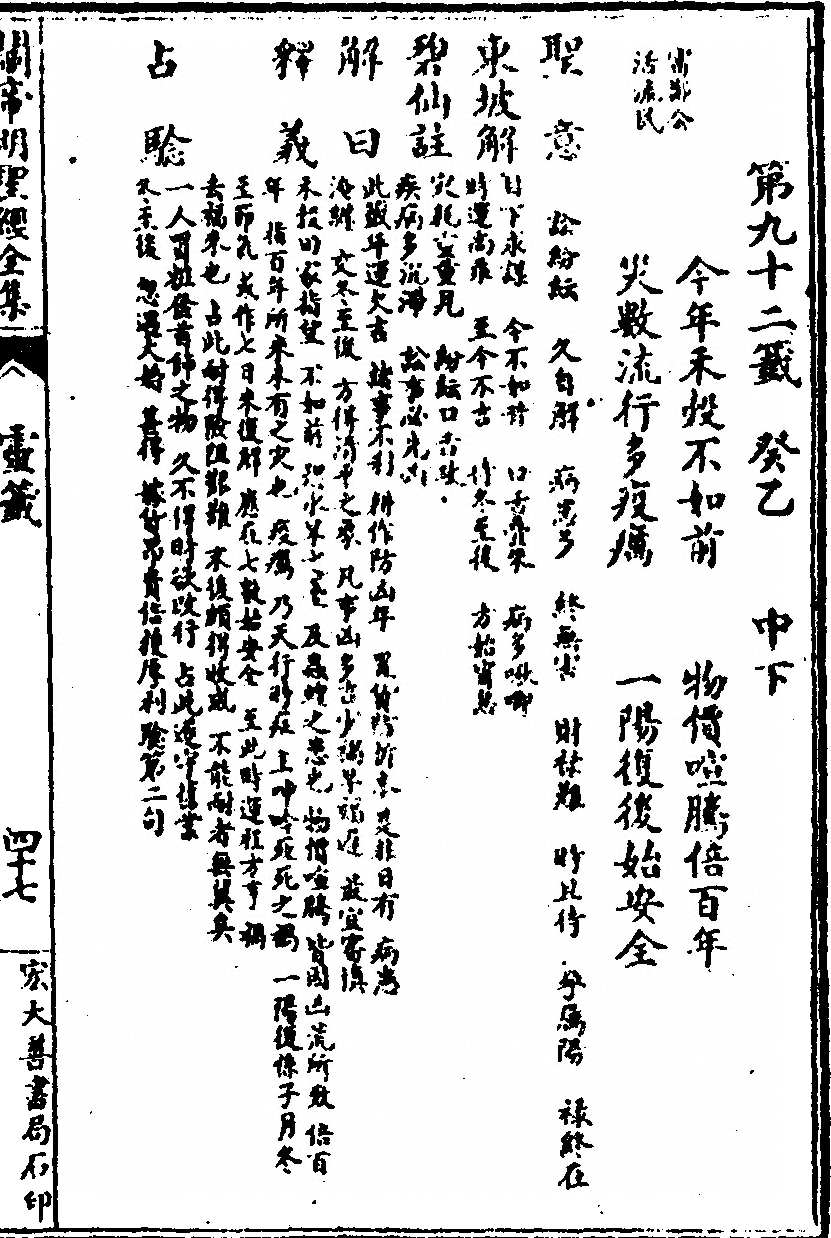 第九十二籤 癸乙 中下
今年禾穀不如前 物價喧騰倍百年
災數流行多疫癘 一陽復後始安全
富鄭公
活流民
聖意 訟紛紜 久自解 病患多 終無害 財祿難 時且待 孕屬陽 祿終在
東坡解 目下求謀 今不如昔 口舌 病多啾唧
時運尚乖 至今不吉 冬至後 方始寧息
碧仙註 災耗重重見 紛紜口舌
疾病多沉滯 訟事必先凶
解曰 此籤年運欠吉 諸事不利 耕作防凶年 置貨防折本 是非日有 病患
交冬至後 方得清平之象 凡事凶多吉少 禍早福遲 最宜審慎
釋義 禾穀 不如前 水旱 及蟲蝗之患也 物價喧騰 皆因凶荒所致 倍百
年 指百年所未有之災也 疫癘 乃天行時症 主呻吟死亡之禍 一陽復係子月冬
至節氣 或作七日來復解 應在七數始安全 至此時運程方亨 禍
去福來也 占此耐得險阻艱難 末後頗得收成 不能耐者無冀矣
占驗 一人 首飾之物 久不得時欲改行 占此遂守舊業
冬至後 忽遇大 倍獲厚利 驗第二句
關帝明聖經全集
靈籤
四十七
宏大善書局石印